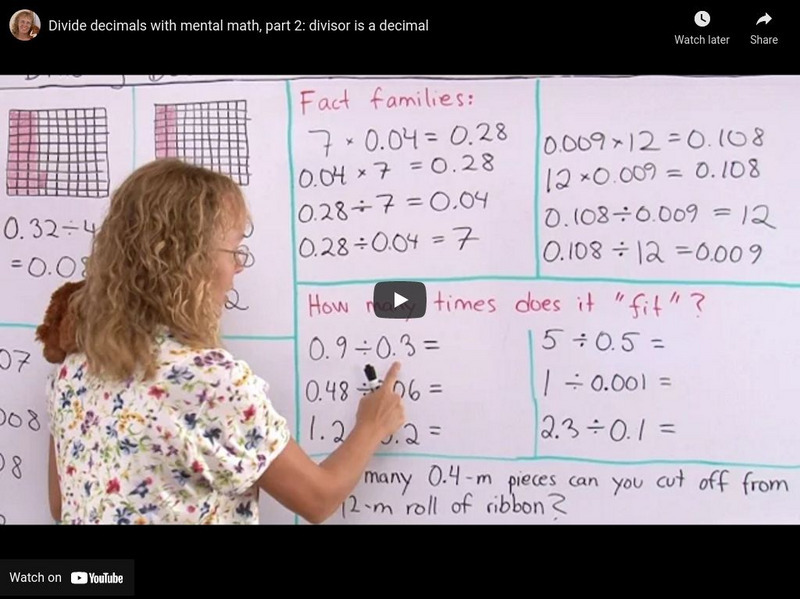 Divide decimals with mental math, part 2: divisor is a decimal
Watch later
Share
0.32÷4
=0.08
07
008
08
Fact families:
7 × 0.04 = 0.28
0.04 × 7 = 0.28
0.28 ÷ 7 = 0.04
0.28 ÷ 0.04 = 7
0.009 × 12 = 0.108
12 × 0.009 = 0.108
0.108 ÷ 0.009 = 12
0.108 ÷ 12 = 0.009
How many times does it "fit"?
0.9 ÷ 0.3 =
0.48 ÷ 06 =
1.2 0.2 =
5 ÷ 0.5 =
1 ÷ 0.001 =
2.3 ÷ 0.1 =
many 0.4-m pieces can you cut off from
12-m roll of ribbon?
Watch on YouTube